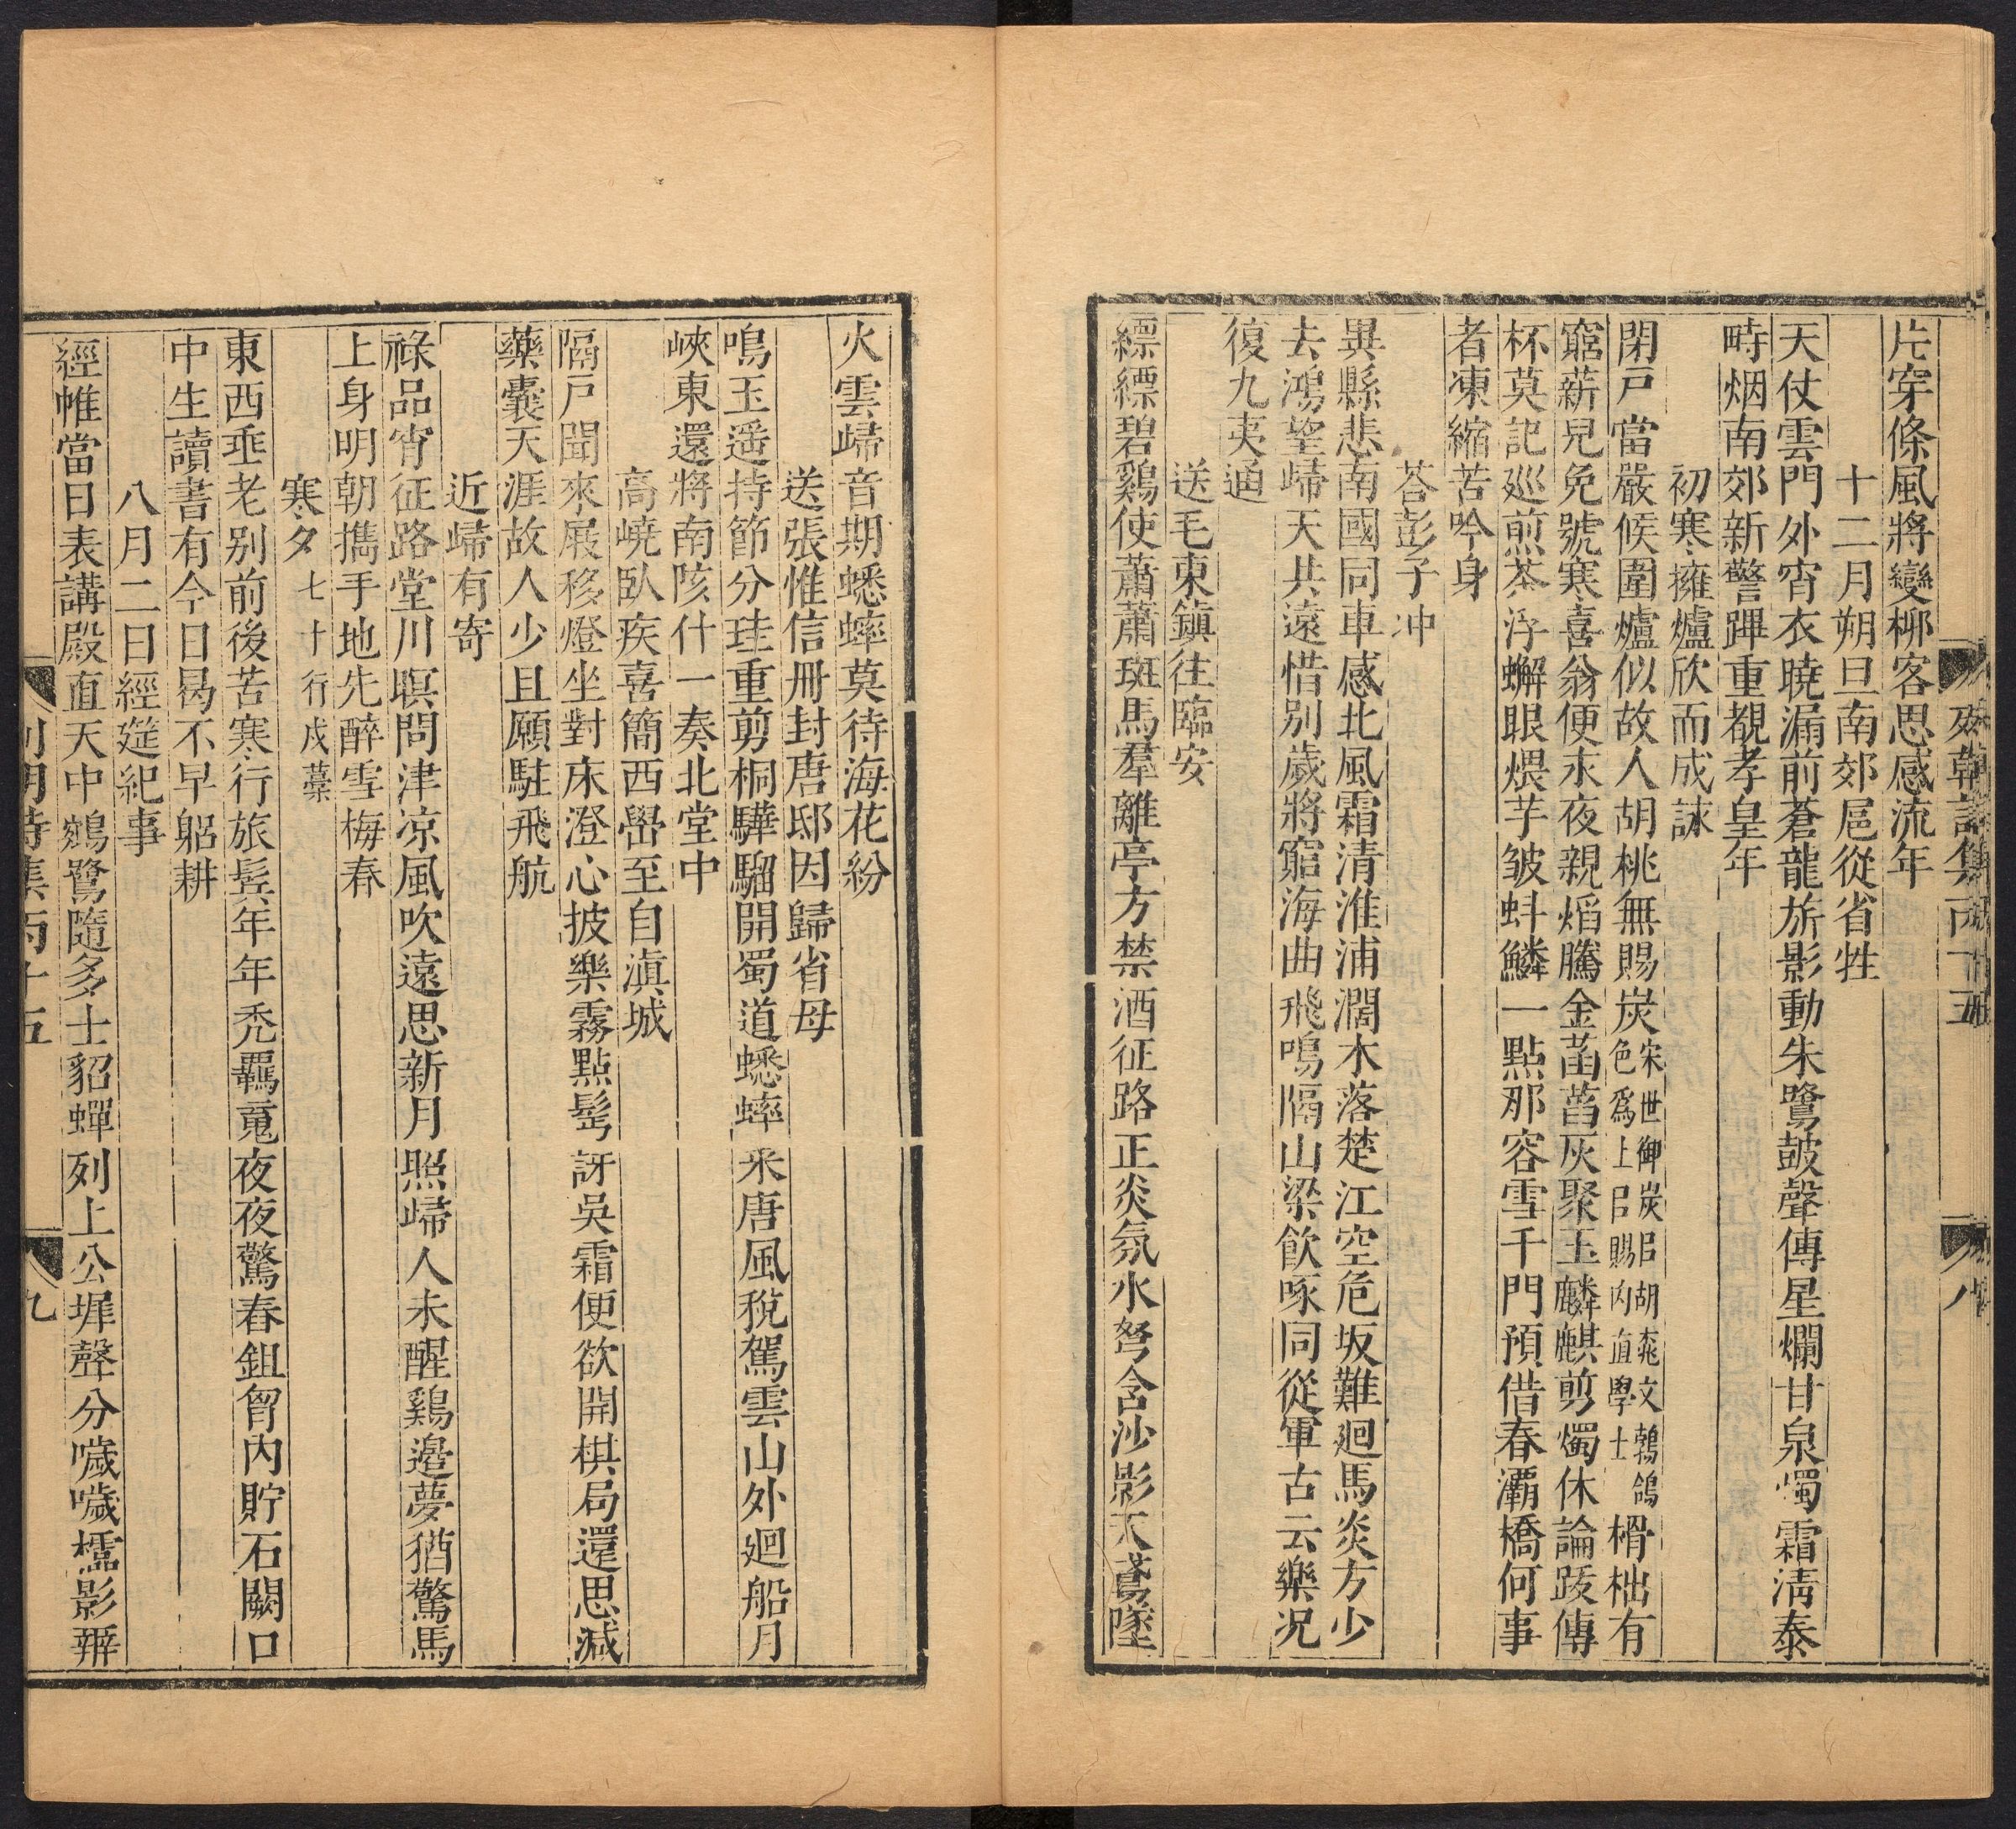 片穿條風將變柳客思感流年
十二月朔旦南郊扈從省牲
天仗雲門外宵衣曉漏前蒼龍旂影動朱鷺皷聲傳星爛甘泉燭霜淸泰
畤烟南郊新警蹕重覩孝皇年
初寒擁爐欣而成詠
閉戸當嚴候圍爐似故人胡桃無賜炭宋世御炭㠯胡桃文鶉鴿色爲上㠯賜內直學士榾柮有
窮薪兒免號寒喜翁便永夜親熖騰金菡萏灰聚玉麟麒剪燭休論跋傳
杯莫記廵煎茶浮蠏眼煨芋皱蚪鱗一點那容雪千門預借春灞橋何事
者凍縮苦吟身
荅彭子冲
異縣悲南國同車感北風霜清淮浦濶木落楚江空危坂難廻馬炎方少
去鴻望歸天共遠惜别歲將窮海曲飛鳴隔山梁飮啄同從軍古云樂况
復九夷通
送毛東鎭往臨安
縹縹碧鷄使蕭蕭斑馬羣離亭方禁酒征路正炎氛水弩含沙影天鳶墜
列朝詩集丙十五
八
火雲歸音期蟋蟀莫待海花紛
送張惟信冊封唐邸因歸省母
鳴玉遥持節分珪重剪桐驊騮開蜀道蟋蟀采唐風稅駕雲山外廻船月
峽東還將南陔什一奏北堂中
高嶢臥疾喜簡西嵒至自滇城
隔戸聞來屐移燈坐對床澄心披樂霧點髩訝吳霜便欲開棋局還思减
藥囊天涯故人少且願駐飛航
近歸有寄
祿品宵征路堂川暝問津凉風吹遠思新月照歸人未醒鷄邉夢猶驚馬
上身明朝攜手地先醉雪梅春
寒夕七十行戍藁
東西垂老别前後苦寒行旅鬂年年禿羈䰟夜夜驚春鉏胷內貯石闕口
中生讀書有今日曷不早躬耕
八月二日經筵紀事
經帷當日表講殿直天中鵷鷺隨多士貂蟬列上公墀聲分噦噦櫺影辧
列朝詩集丙十五
九